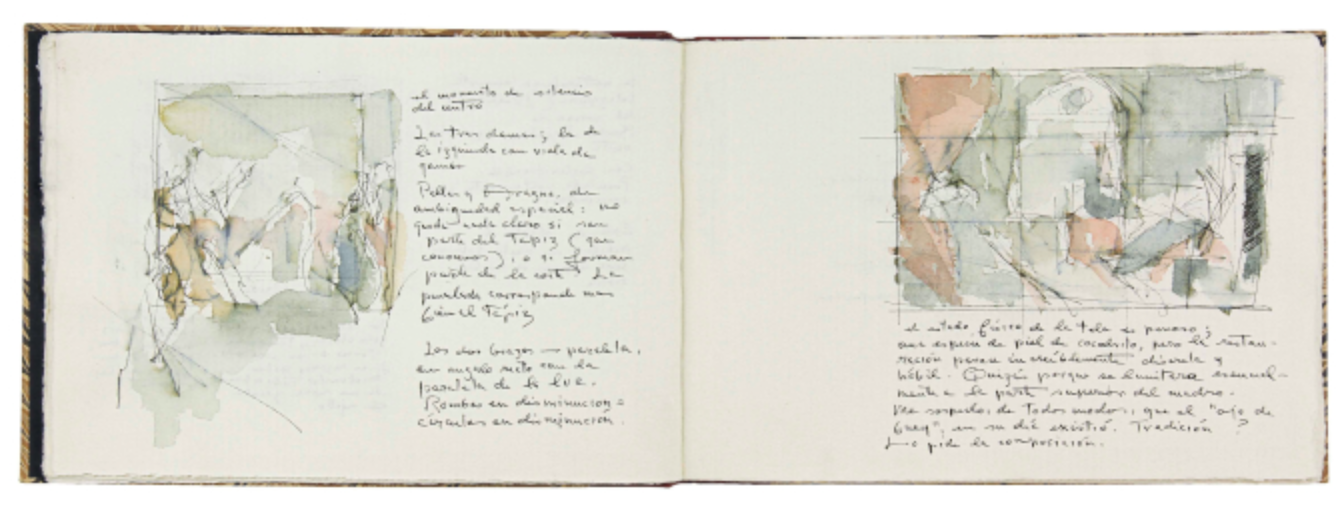 el momento de silencio
del centro
Las tres damas; la de
la izquierda con viola de
gamba
Pallas y Aragne, de
ambigüedad espacial: no
queda nada claro si son
parte del Tapiz (que
conocemos), o si forman
parte de la corte. La
pincelada corresponde mas
bien al Tapiz
Los dos brazos — paralela,
en angulo recto con la
paralela de la luz.
Rombos en disminución =
círculos en disminución.
el estado físico de la tela es penoso;
una especie de piel de cocodrilo, pero la restau-
ración parece increíblemente discreta y
hábil. Quizás porque se limitara esencial-
mente a la parte superior del cuadro.
Me sospecho, de todos modos, que el "ojo de
buey", en su día existió. Tradición?
Lo pide la composición.